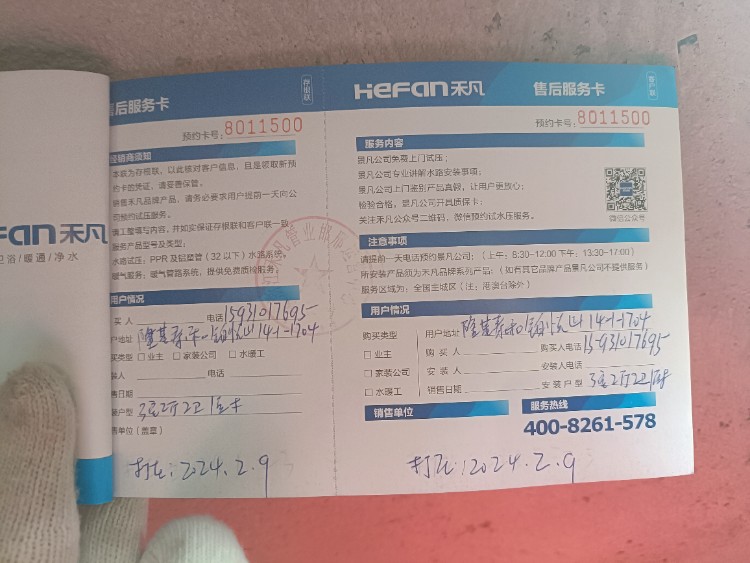 Fan禾凡
卫浴/暖通/净水
售后服务卡
存根联
预约卡号: 8011500
经销商须知
本联为存根联，以此核对客户信息，且是领取新预
约卡的凭证，请妥善保管。
销售禾凡品牌产品，请务必要求用户提前一天向公
司预约试压服务。
请工整填写内容，并如实保证存根联和客户联一致
服务产品型号及类型：
水路试压：PPR及铝塑管（32以下）水路系统。
暖气服务：暖气管路系统，提供免费质检服务。
用户情况
买人 电话 15931017695
户地址 14-1-1704
买类型 □ 业主 □ 家装公司 □ 水暖工
装人 电话
售日期
装户型 3室2厅2卫1
售单位（盖章）
打压：2024.2.9
HeFan禾凡
售后服务卡
客户联
预约卡号: 8011500
服务内容
景凡公司免费上门试压；
景凡公司专业讲解水路安装事项；
景凡公司上门鉴别产品真假，让用户更放心；
检验合格，景凡公司开具质保卡；
关注禾凡公众号二维码，微信预约试水压服务。
微信公众号
注意事项
请提前一天电话预约景凡公司；（上午：8:30-12:00 下午：13:30-17:00）
所安装产品须为禾凡品牌系列产品；（如有其它品牌产品景凡公司不提供服务）
服务区域为：全国主城区（注：港澳台除外）
用户情况
购买类型
□ 业主
□ 家装公司
□ 水暖工
用户地址 14-1-1704
购 买 人 购买人电话 15931017695
安 装 人 安装人电话
销售日期 安装户型 3室2厅2卫1
销售单位
服务热线
400-8261-578
打压：2024.2.9